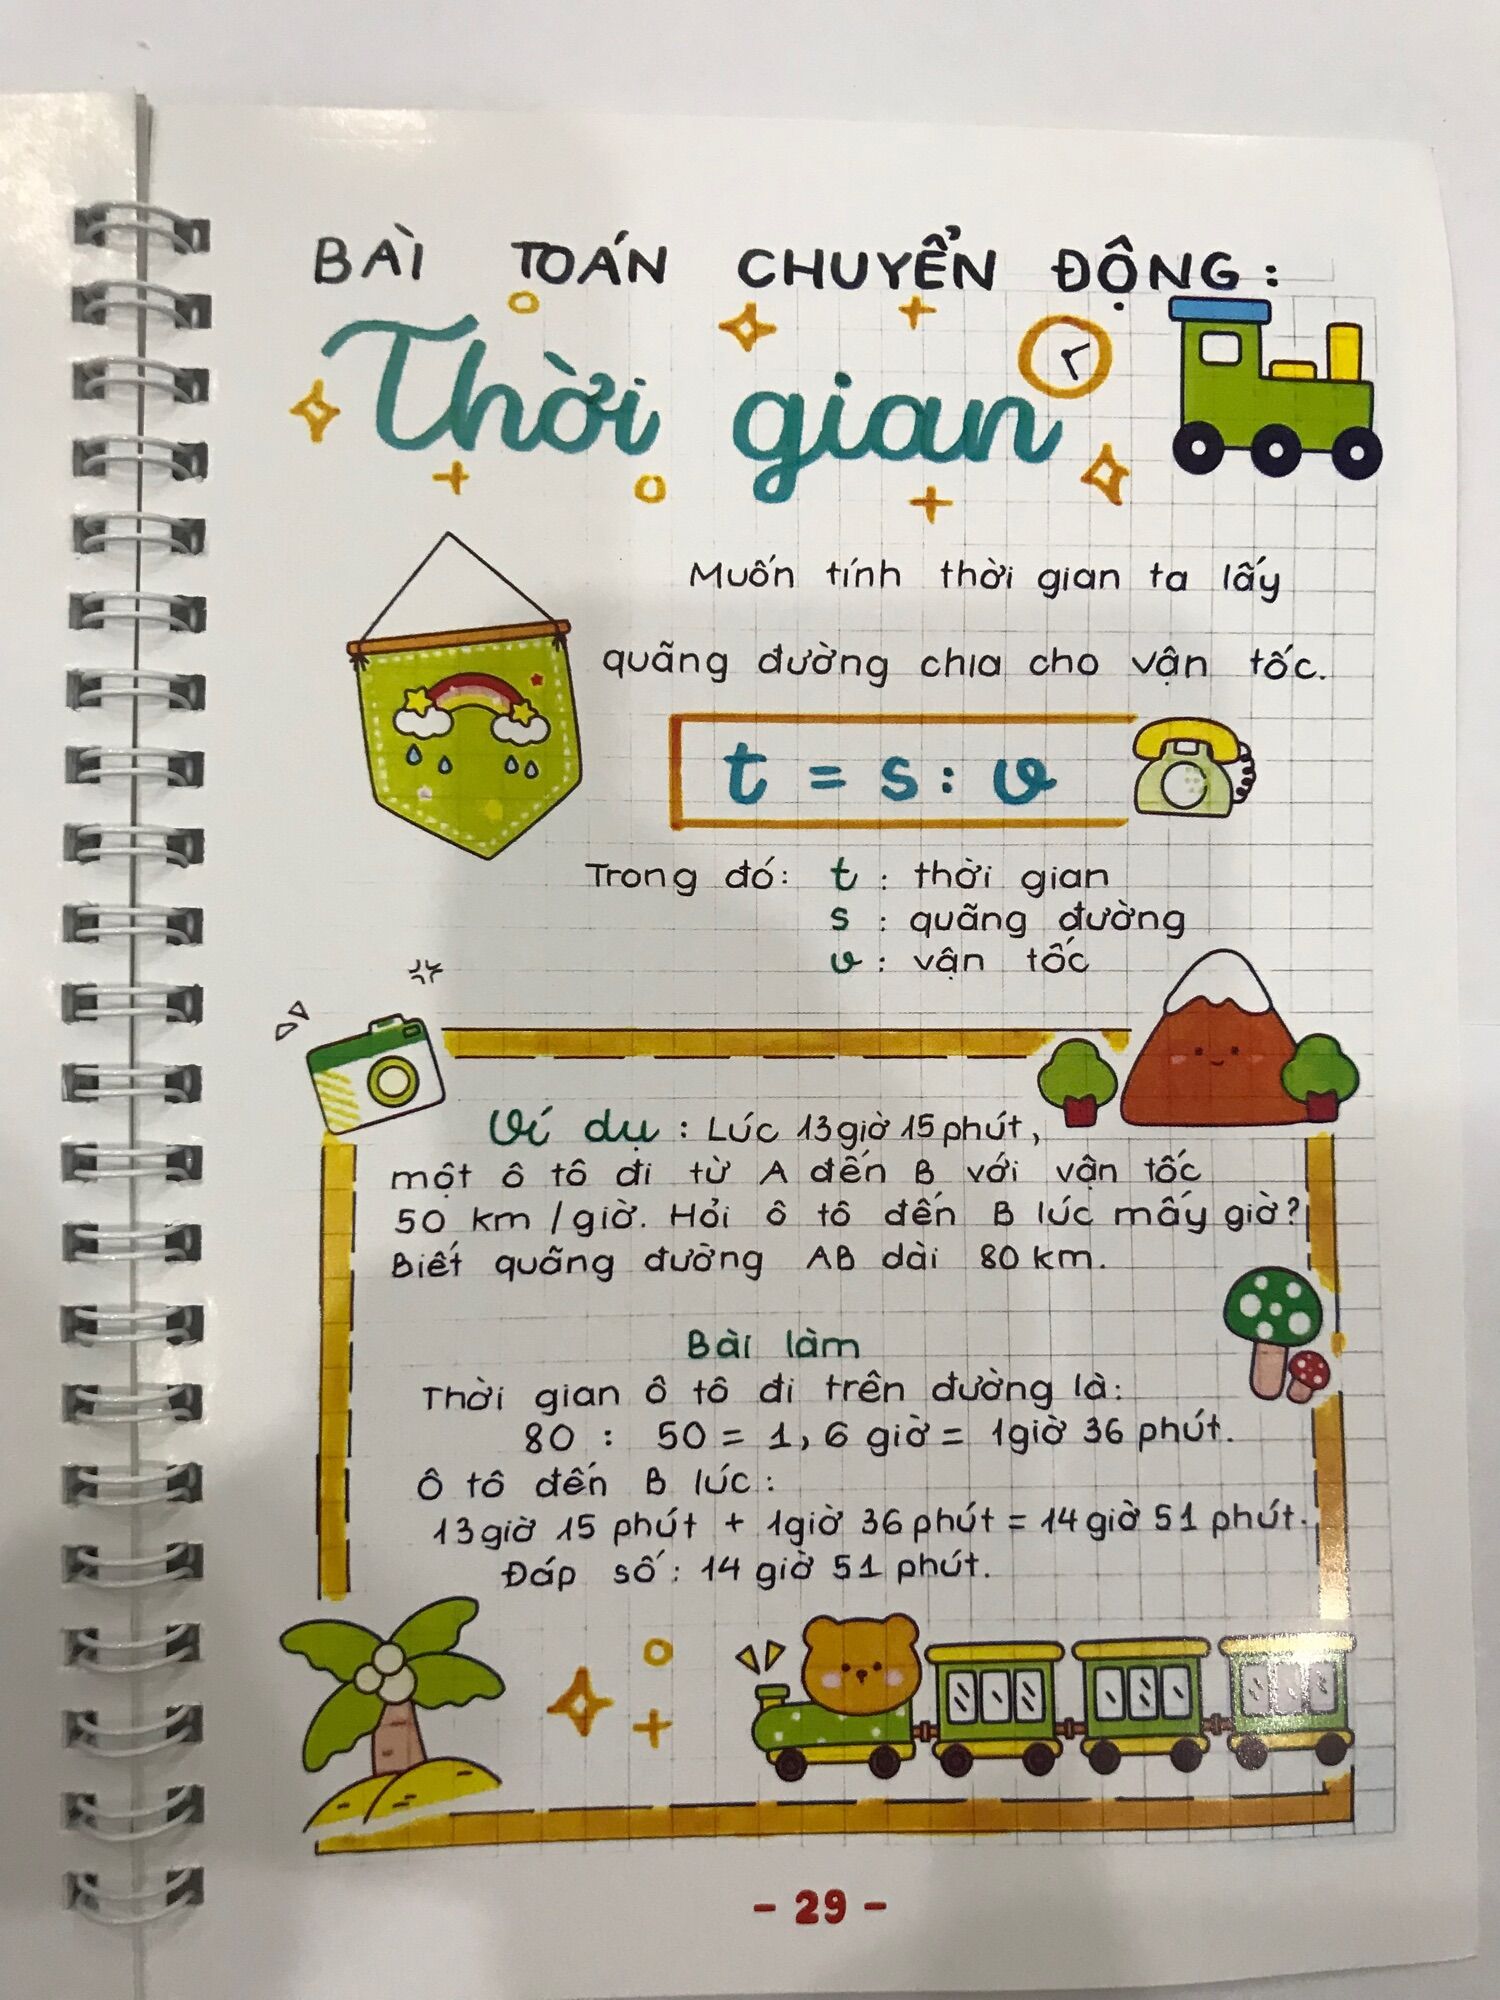 BÀI TOÁN CHUYỂN ĐỘNG:
Thời gian
Muốn tính thời gian ta lấy
quãng đường chia cho vận tốc.
t = s : v
Trong đó: t : thời gian
s : quãng đường
v : vận tốc
Ví dụ : Lúc 13 giờ 15 phút,
một ô tô đi từ A đến B với vận tốc
50 km /giờ. Hỏi ô tô đến B lúc mấy giờ?
Biết quãng đường AB dài 80 km.
Bài làm
Thời gian ô tô đi trên đường là:
80 : 50 = 1,6 giờ = 1 giờ 36 phút.
Ô tô đến B lúc:
13 giờ 15 phút + 1 giờ 36 phút = 14 giờ 51 phút.
Đáp số: 14 giờ 51 phút.
- 29 -